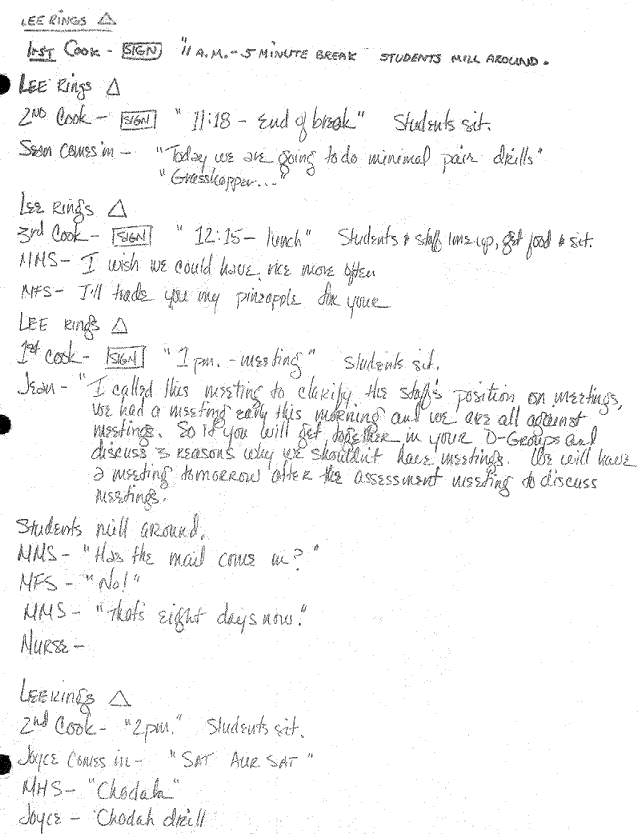 LEE RINGS △
1st Cook - SIGN "11 A.M. - 5 MINUTE BREAK STUDENTS MILL AROUND.
LEE Rings △
2ND Cook - SIGN " 11:18 - End of break" Students sit.
Sean comes in - "Today we are going to do minimal pair drills"
"Grasshopper..."
LEE Rings △
3rd Cook - SIGN " 12:15 - lunch" Students & staff line up, get food & sit.
MMS - I wish we could have rice more often
MFS - I'll trade you my pineapple for your
LEE rings △
1st cook - SIGN " 1 pm. - meeting " Students sit.
Jean - "I called this meeting to clarify the staff's position on meetings.
We had a meeting early this morning and we are all against
meetings. So if you will get together in your D-Groups and
discuss 3 reasons why we shouldn't have meetings. We will have
a meeting tomorrow after the assessment meeting to discuss
meetings.
Students mill around.
MMS - "Has the mail come in? "
MFS - "No!"
MMS - "That's eight days now."
NURSE -
LEE Rings △
2nd Cook - "2pm." Students sit.
Joyce comes in - "SAT AUR SAT "
MHS - "Chodah"
Joyce - Chodah drill